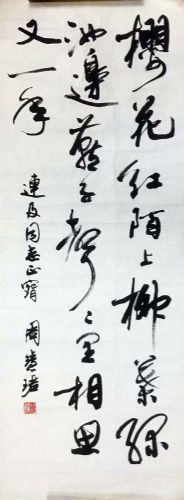 樱花红陌上柳葉绿
池邊燕子聲聲里相思
又一年
連及同志正腕
周慧珺